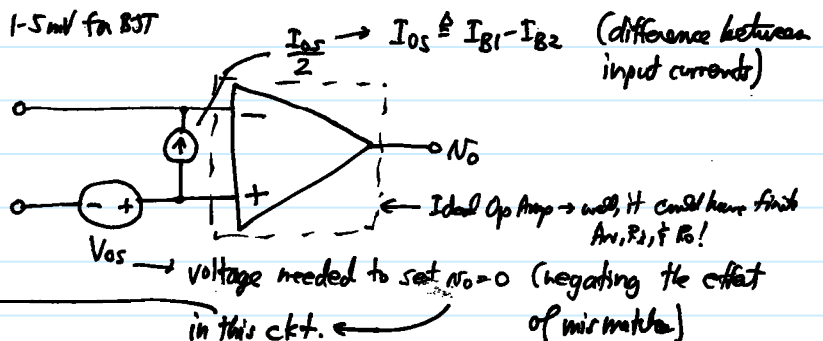 1-5mV for BJT
I_OS/2 → I_OS ≜ I_B1 - I_B2 (difference between
input currents)
-
+
v_o
- +
V_OS
← Ideal Op Amp → well, it could have finite
A_v, R_i, & R_o!
→ voltage needed to set v_o=0 (negating the effect
in this ckt. ← of mismatches)